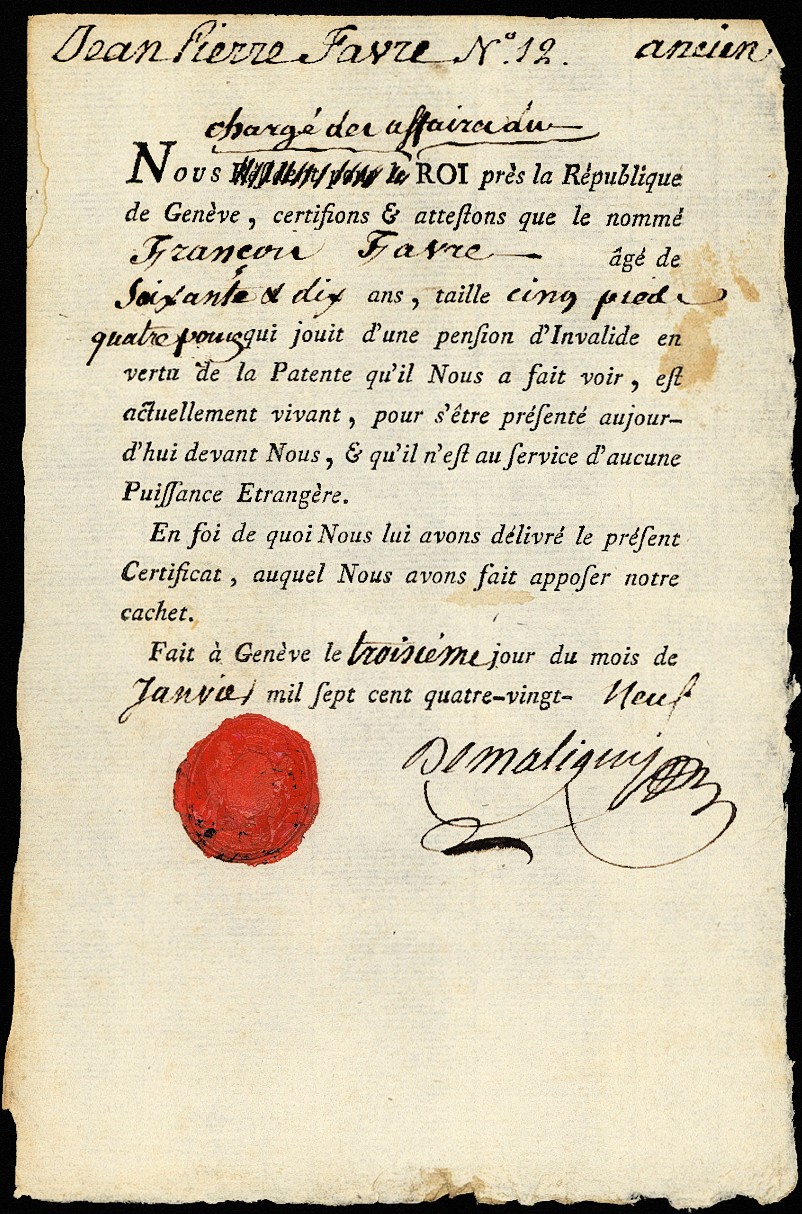 Jean Pierre Favre N.º 12. ancien
chargé des affaires du
Nous Résident pour le ROI près la République
de Genève, certifions & atteſtons que le nommé
François Favre âgé de
Soixante & dix ans, taille cinq pieds
quatre pouces qui jouit d'une penſion d'Invalide en
vertu de la Patente qu'il Nous a fait voir, eſt
actuellement vivant, pour s'être préſenté aujour-
d'hui devant Nous, & qu'il n'eſt au ſervice d'aucune
Puiſſance Etrangère.
En foi de quoi Nous lui avons délivré le préſent
Certificat, auquel Nous avons fait appoſer notre
cachet.
Fait à Genève le troisiéme jour du mois de
Janvier mil ſept cent quatre-vingt- Neuf